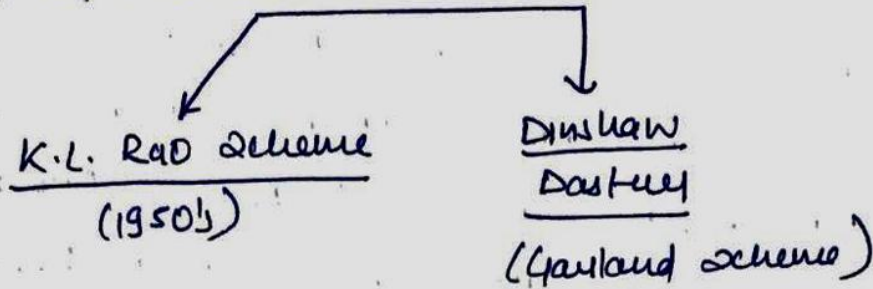 K.L. Rao scheme
(1950's)
Dinshaw
Dastur
(Garland scheme)